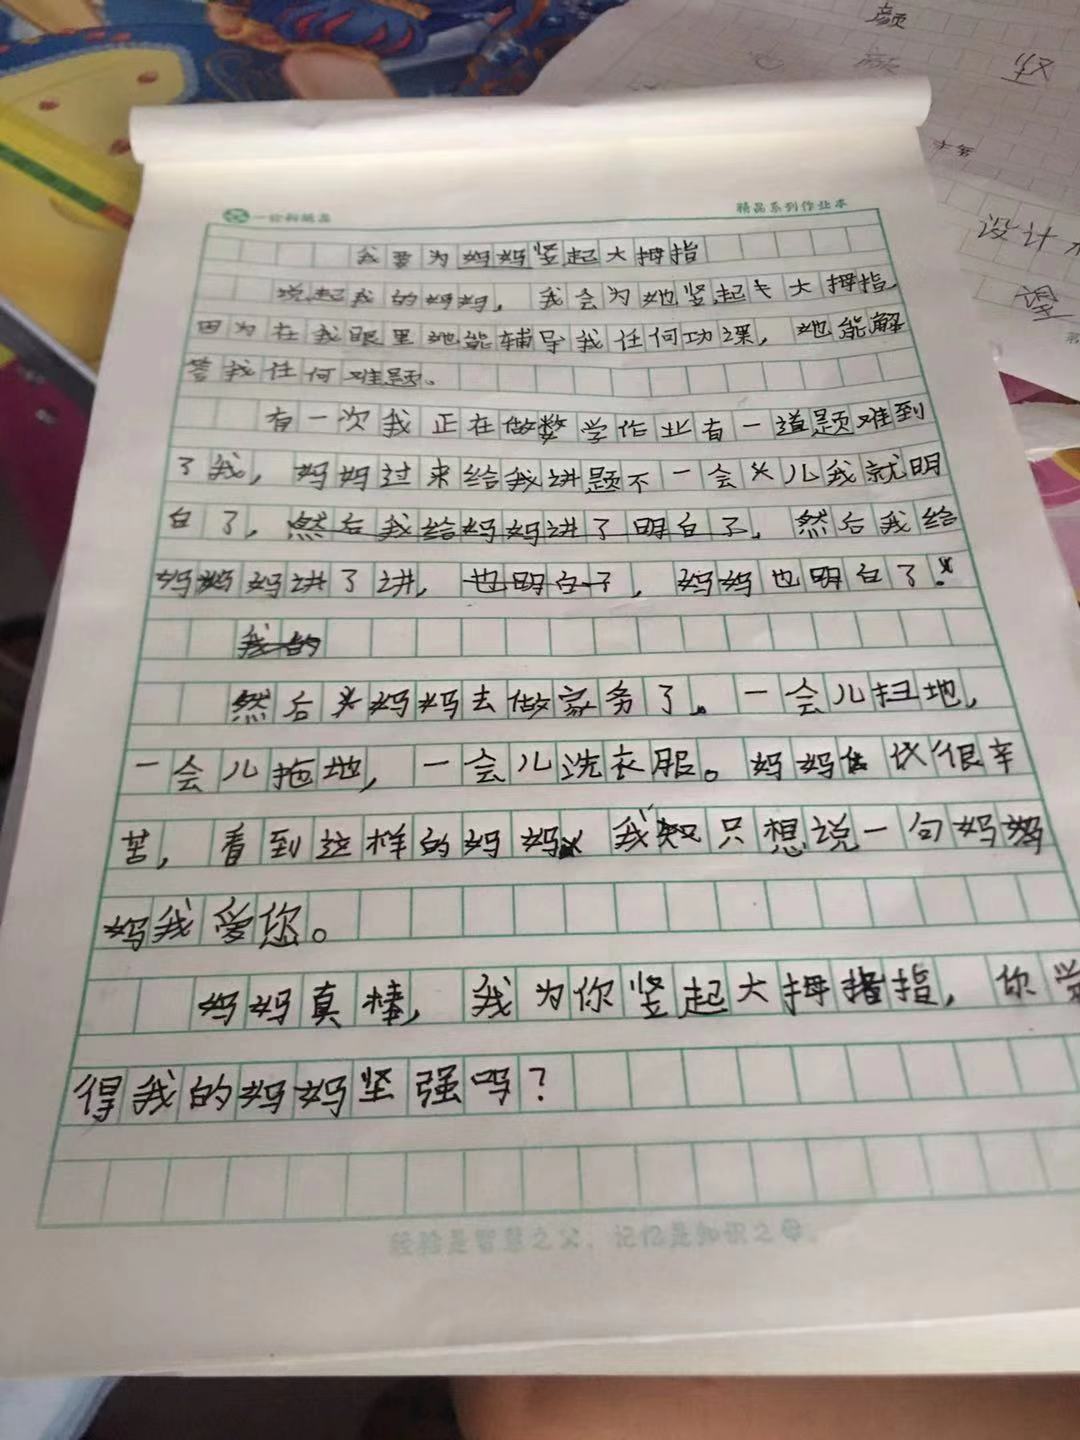 颜
颜
坚
一伦科纸品
精品系列作业本
设计
我要为妈妈竖起大拇指
说起我的妈妈，我会为她竖起大拇指，
因为在我眼里她能辅导我任何功课，她能解
答我任何难题。
有一次我正在做数学作业有一道题难到
了我，妈妈过来给我讲题不一会儿我就明
白了，然后我给妈妈讲了明白了，然后我给
妈妈讲了讲，也明白了，妈妈也明白了！
我的
然后妈妈去做家务了。一会儿扫地，
一会儿拖地，一会儿洗衣服。妈妈很辛
苦，看到这样的妈妈我只想说一句妈妈
妈我爱你。
妈妈真棒，我为你竖起大拇指，你觉
得我的妈妈坚强吗？
经验是智慧之父，记忆是知识之母。